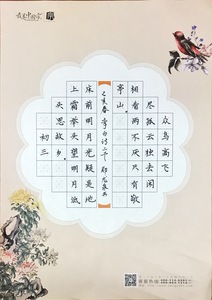 众鸟高飞
尽孤云独去闲
相看两不厌只有敬
亭山。
己亥春 李白诗二首
床前明月光疑是地
上霜举头望明月低
头思故乡。
初三